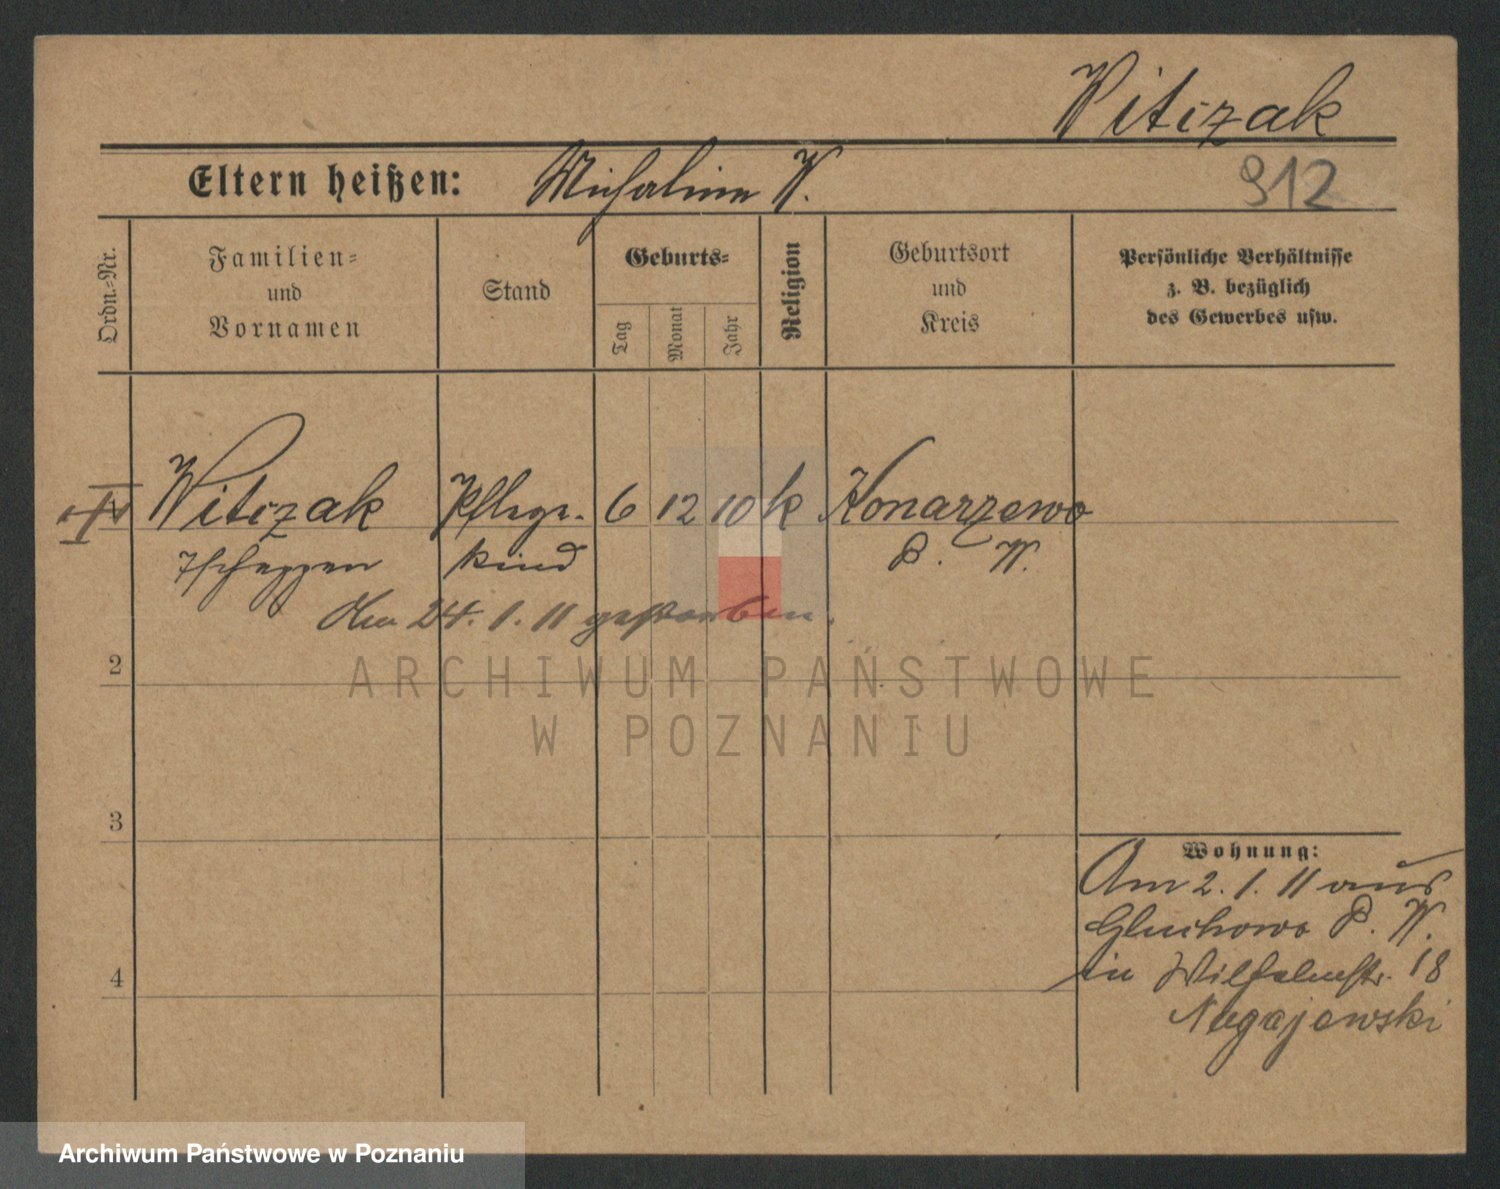 Witczak
Eltern heißen: Michalina W.
912
Ordn.=Nr.
Familien=
und
Vornamen
Stand
Geburts=
Tag
Monat
Jahr
Religion
Geburtsort
und
Kreis
Persönliche Verhältnisse
z. B. bezüglich
des Gewerbes usw.
Witczak Pflege- 6 12 10 k Konarzewo
kind P. W.
Am 24. 1. 11 gestorben.
2
3
4
Wohnung:
Am 2. 1. 11 aus
Gluchowo P. W.
in Wilhelmstr. 18
Nogajewski
ARCHIWUM PAŃSTWOWE
W POZNANIU
Archiwum Państwowe w Poznaniu